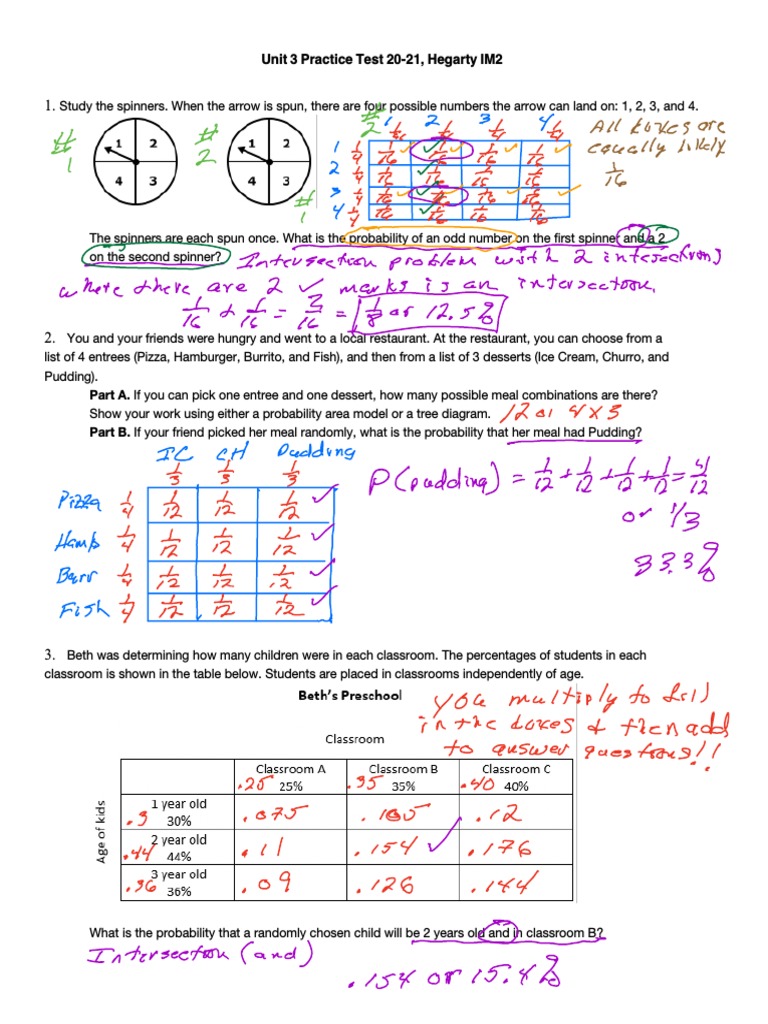 Unit 3 Practice Test 20-21, Hegarty IM2
1. Study the spinners. When the arrow is spun, there are four possible numbers the arrow can land on: 1, 2, 3, and 4.
#1
1 2
4 3
#2
1 2
4 3
#2 1 2 3 4
#1
1/4 1/4 1/4 1/4
1 1/4 1/16 1/16 1/16 1/16
2 1/4 1/16 1/16 1/16 1/16
3 1/4 1/16 1/16 1/16 1/16
4 1/4 1/16 1/16 1/16 1/16
All boxes are
equally likely
1/16
The spinners are each spun once. What is the probability of an odd number on the first spinner and a 2
on the second spinner? Intersection problem with 2 intersections
where there are 2 ✓ marks is an intersection.
1/16 + 1/16 = 2/16 = 1/8 or 12.5%
2. You and your friends were hungry and went to a local restaurant. At the restaurant, you can choose from a
list of 4 entrees (Pizza, Hamburger, Burrito, and Fish), and then from a list of 3 desserts (Ice Cream, Churro, and
Pudding).
Part A. If you can pick one entree and one dessert, how many possible meal combinations are there?
Show your work using either a probability area model or a tree diagram. 12 or 4 x 3
Part B. If your friend picked her meal randomly, what is the probability that her meal had Pudding?
IC CH Pudding
1/3 1/3 1/3
Pizza 1/4 1/12 1/12 1/12 ✓
Hamb 1/4 1/12 1/12 1/12 ✓
Burr 1/4 1/12 1/12 1/12 ✓
Fish 1/4 1/12 1/12 1/12 ✓
P(pudding) = 1/12 + 1/12 + 1/12 + 1/12 = 4/12
or 1/3
33.3%
3. Beth was determining how many children were in each classroom. The percentages of students in each
classroom is shown in the table below. Students are placed in classrooms independently of age.
Beth's Preschool
you multiply to fill
in the boxes & then add
to answer questions!!
Classroom
Classroom A Classroom B Classroom C
.25 25% .35 35% .40 40%
Age of kids
1 year old
.3 30% .075 .105 .12
2 year old
.44 44% .11 .154 ✓ .176
3 year old
.36 36% .09 .126 .144
What is the probability that a randomly chosen child will be 2 years old and in classroom B?
Intersection (and)
.154 or 15.4%